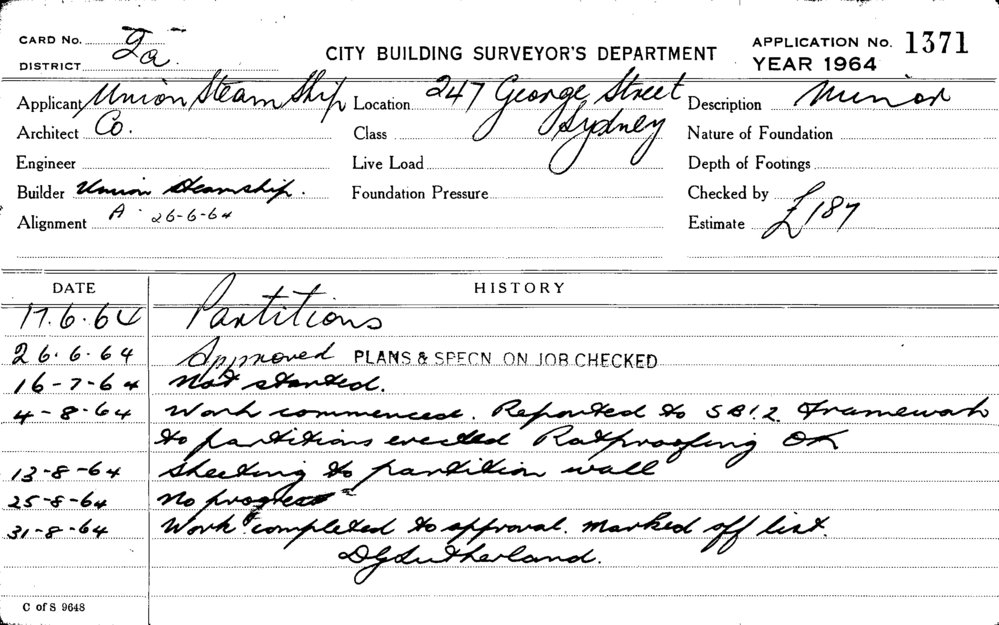 CARD No. 2a
DISTRICT
CITY BUILDING SURVEYOR'S DEPARTMENT
APPLICATION No. 1371
YEAR 1964
Applicant Union Steam Ship Co. Location 247 George Street Sydney Description Minor
Architect Class Nature of Foundation
Engineer Live Load Depth of Footings
Builder Union Steamship. Foundation Pressure Checked by
Alignment A. 26-6-64 Estimate £187
DATE HISTORY
17.6.64 Partitions
26.6.64 Approved PLANS & SPECN ON JOB CHECKED
16-7-64 Not started.
4-8-64 Work commenced. Reported to SB1.2 Framework
to partitions erected Ratproofing OK
13-8-64 Sheeting to partition wall
25-8-64 No progress
31-8-64 Work completed to approval. Marked off list.
DGSutherland.
C of S 9648